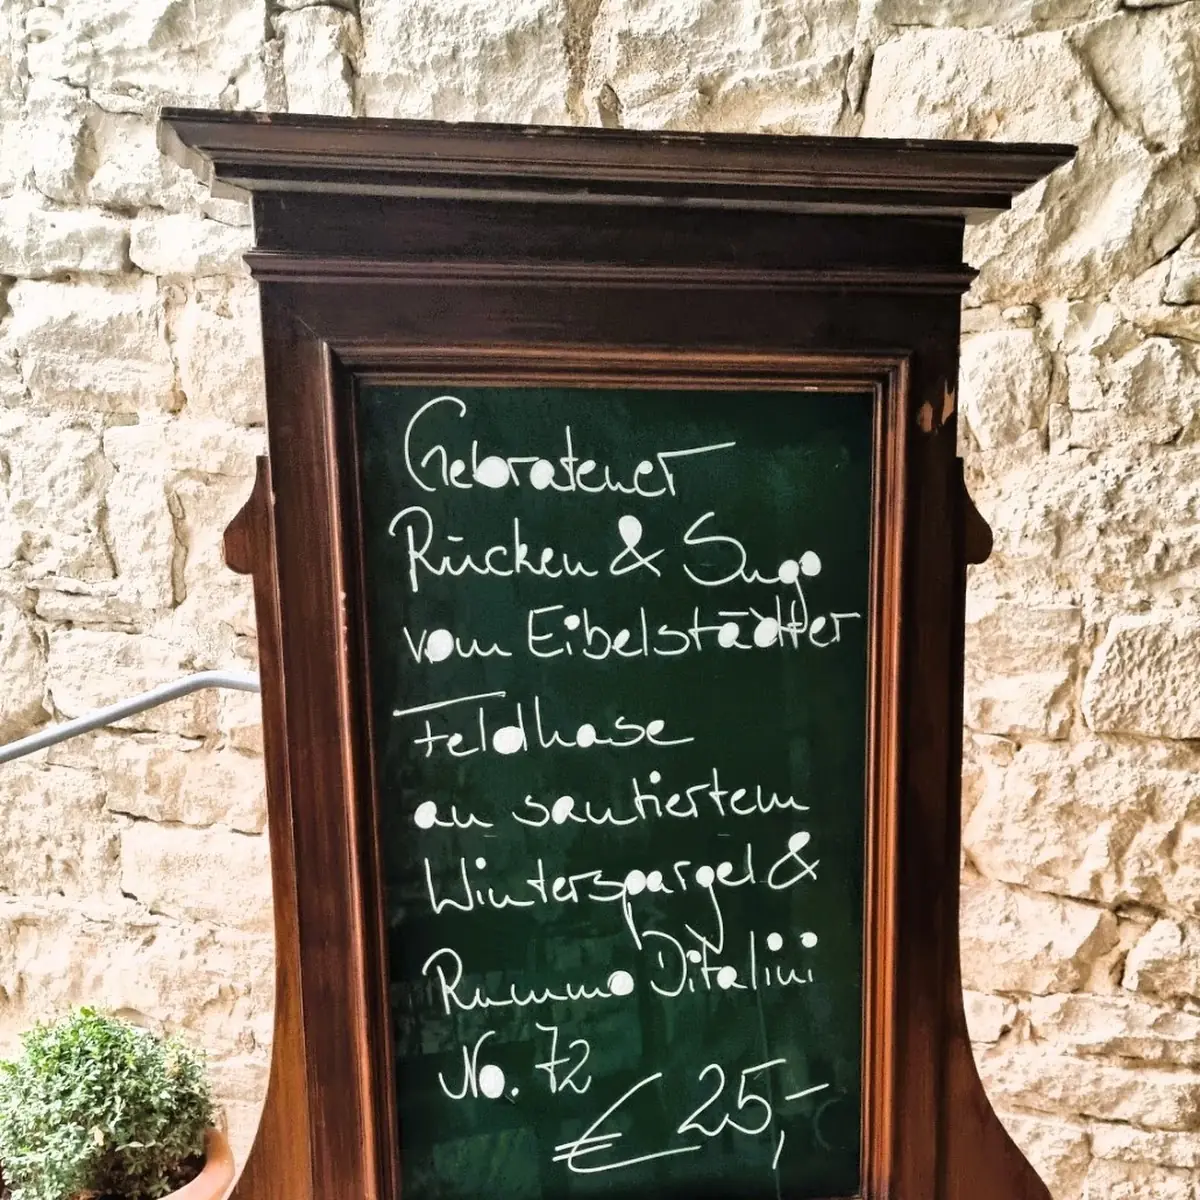 Gebratener
Rücken & Sugo
vom Eibelstädter
Feldhase
an sautiertem
Winterspargel &
Rummo Ditalini
No. 72
€ 25,-